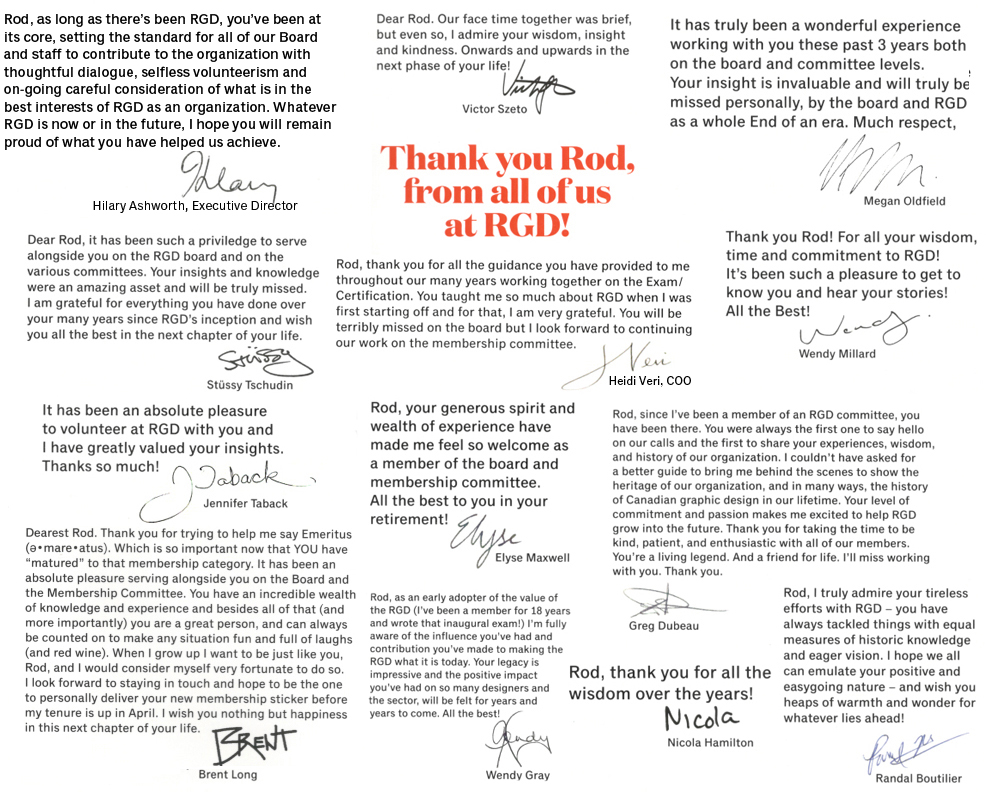 Rod, as long as there's been RGD, you've been at
its core, setting the standard for all of our Board
and staff to contribute to the organization with
thoughtful dialogue, selfless volunteerism and
on-going careful consideration of what is in the
best interests of RGD as an organization. Whatever
RGD is now or in the future, I hope you will remain
proud of what you have helped us achieve.
Hilary
Hilary Ashworth, Executive Director
Dear Rod. Our face time together was brief,
but even so, I admire your wisdom, insight
and kindness. Onwards and upwards in the
next phase of your life!
Victor Szeto
It has truly been a wonderful experience
working with you these past 3 years both
on the board and committee levels.
Your insight is invaluable and will truly be
missed personally, by the board and RGD
as a whole End of an era. Much respect,
Megan Oldfield
Thank you Rod,
from all of us
at RGD!
Dear Rod, it has been such a priviledge to serve
alongside you on the RGD board and on the
various committees. Your insights and knowledge
were an amazing asset and will be truly missed.
I am grateful for everything you have done over
your many years since RGD's inception and wish
you all the best in the next chapter of your life.
Stüssy
Stüssy Tschudin
Rod, thank you for all the guidance you have provided to me
throughout our many years working together on the Exam/
Certification. You taught me so much about RGD when I was
first starting off and for that, I am very grateful. You will be
terribly missed on the board but I look forward to continuing
our work on the membership committee.
Veri
Heidi Veri, COO
Thank you Rod! For all your wisdom,
time and commitment to RGD!
It's been such a pleasure to get to
know you and hear your stories!
All the Best!
Wendy
Wendy Millard
It has been an absolute pleasure
to volunteer at RGD with you and
I have greatly valued your insights.
Thanks so much!
J Taback
Jennifer Taback
Rod, your generous spirit and
wealth of experience have
made me feel so welcome as
a member of the board and
membership committee.
All the best to you in your
retirement!
Elyse
Elyse Maxwell
Rod, since I've been a member of an RGD committee, you
have been there. You were always the first one to say hello
on our calls and the first to share your experiences, wisdom,
and history of our organization. I couldn't have asked for
a better guide to bring me behind the scenes to show the
heritage of our organization, and in many ways, the history
of Canadian graphic design in our lifetime. Your level of
commitment and passion makes me excited to help RGD
grow into the future. Thank you for taking the time to be
kind, patient, and enthusiastic with all of our members.
You're a living legend. And a friend for life. I'll miss working
with you. Thank you.
Greg Dubeau
Dearest Rod. Thank you for trying to help me say Emeritus
(ə•mare•atus). Which is so important now that YOU have
"matured" to that membership category. It has been an
absolute pleasure serving alongside you on the Board and
the Membership Committee. You have an incredible wealth
of knowledge and experience and besides all of that (and
more importantly) you are a great person, and can always
be counted on to make any situation fun and full of laughs
(and red wine). When I grow up I want to be just like you,
Rod, and I would consider myself very fortunate to do so.
I look forward to staying in touch and hope to be the one
to personally deliver your new membership sticker before
my tenure is up in April. I wish you nothing but happiness
in this next chapter of your life.
BRENT
Brent Long
Rod, as an early adopter of the value of
the RGD (I've been a member for 18 years
and wrote that inaugural exam!) I'm fully
aware of the influence you've had and
contribution you've made to making the
RGD what it is today. Your legacy is
impressive and the positive impact
you've had on so many designers and
the sector, will be felt for years and
years to come. All the best!
Wendy
Wendy Gray
Rod, thank you for all the
wisdom over the years!
Nicola
Nicola Hamilton
Rod, I truly admire your tireless
efforts with RGD – you have
always tackled things with equal
measures of historic knowledge
and eager vision. I hope we all
can emulate your positive and
easygoing nature – and wish you
heaps of warmth and wonder for
whatever lies ahead!
Randal Boutilier